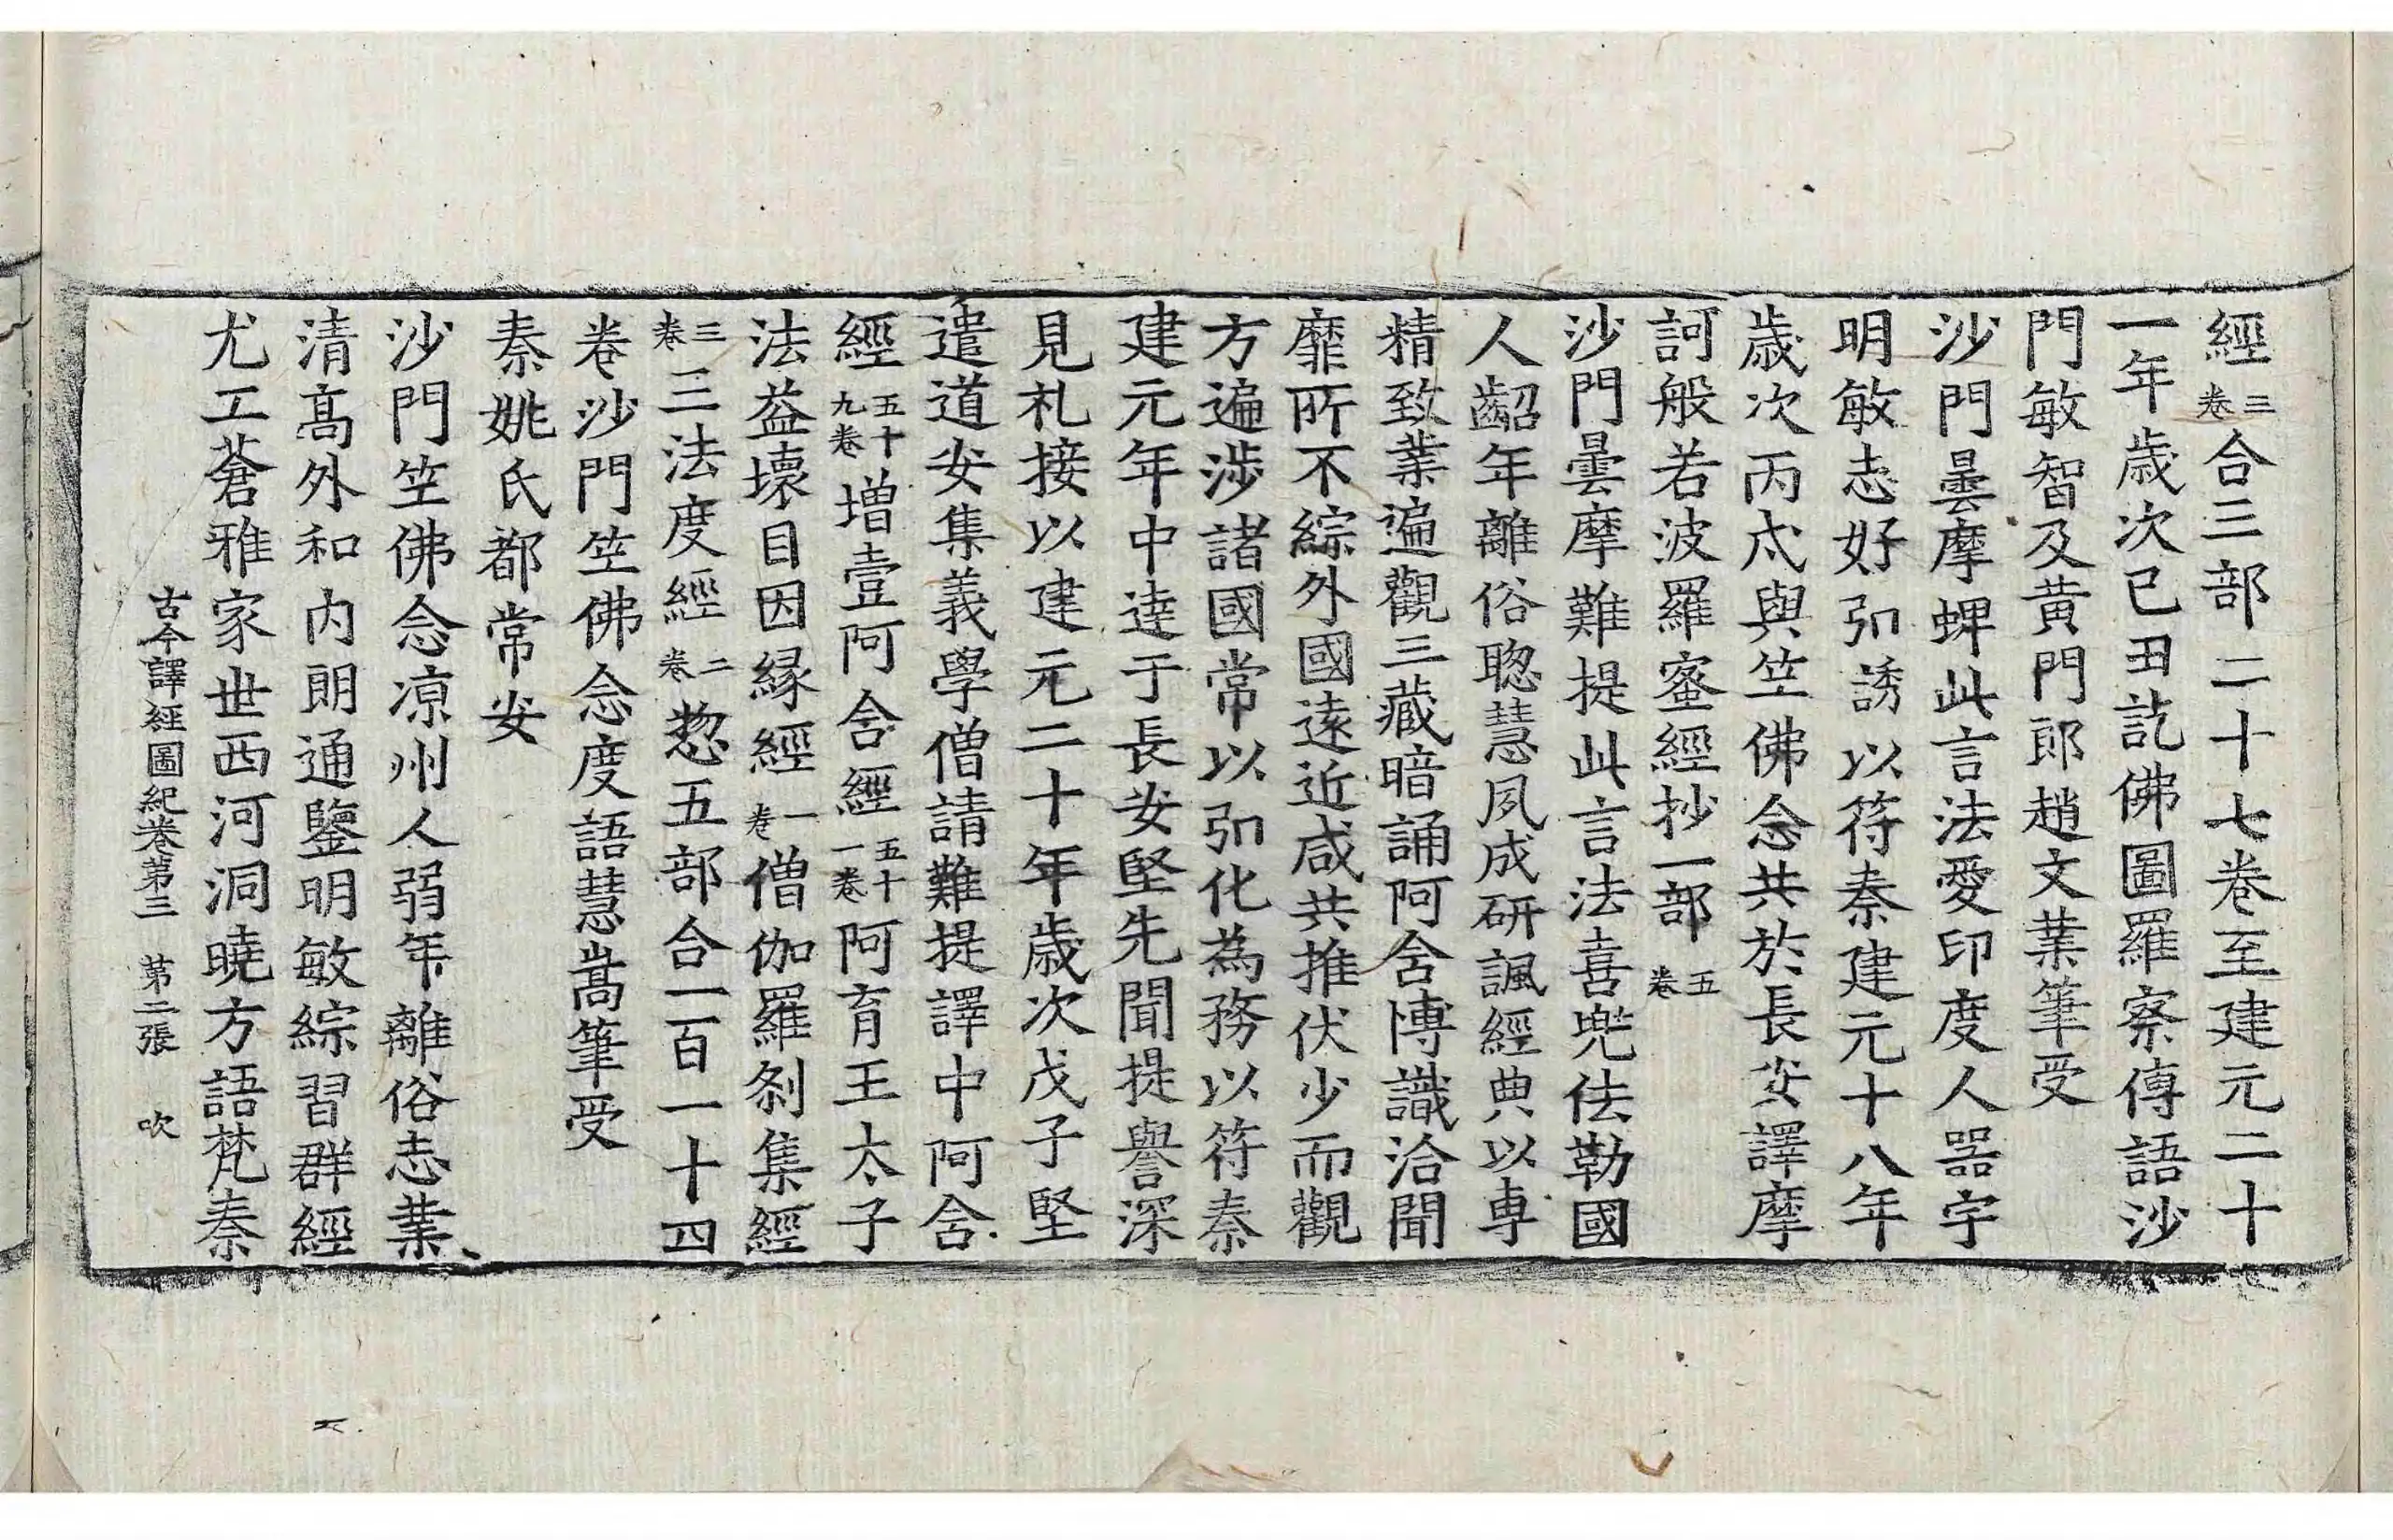 經三卷合三部二十七卷至建元二十
一年歲次已丑訖佛圖羅察傳語沙
門敏智及黃門郎趙文業筆受
沙門曇摩蜱此言法愛印度人器宇
明敏志好引誘以符秦建元十八年
歲次丙戌與竺佛念共於長安譯摩
訶般若波羅蜜經抄一部五卷
沙門曇摩難提此言法喜兜佉勒國
人齠年離俗聦慧夙成研諷經典以專
精致業遍觀三藏暗誦阿含博識洽聞
靡所不綜外國遠近咸共推伏少而觀
方遍涉諸國常以引化為務以符秦
建元年中達于長安堅先聞提譽深
見礼接以建元二十年歲次戊子堅
遣道安集義學僧請難提譯中阿含
經五十九卷增壹阿含經五十一卷阿育王太子
法益壞目因緣經一卷僧伽羅剎集經
三卷三法度經二卷惣五部合一百一十四
卷沙門竺佛念度語慧嵩筆受
秦姚氏都常安
沙門竺佛念涼州人弱年離俗志業
清高外和內朗通鑒明敏綜習群經
尤工蒼雅家世西河洞曉方語梵秦
古今譯經圖紀卷第三 第二張 吹